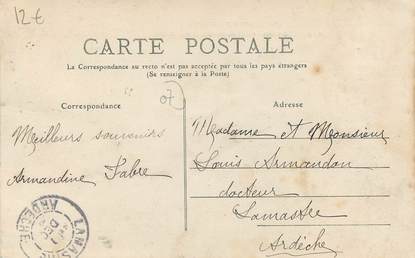 12€
CARTE POSTALE
La Correspondance au recto n'est pas acceptée par tous les pays étrangers
(Se renseigner à la Poste)
Correspondance
07
Adresse
Meilleurs souvenirs
Armandine Fabre
Madame et Monsieur
Louis Armandon
docteur
Lamastre
Ardèche
LAMASTRE
DEC
ARDECHE